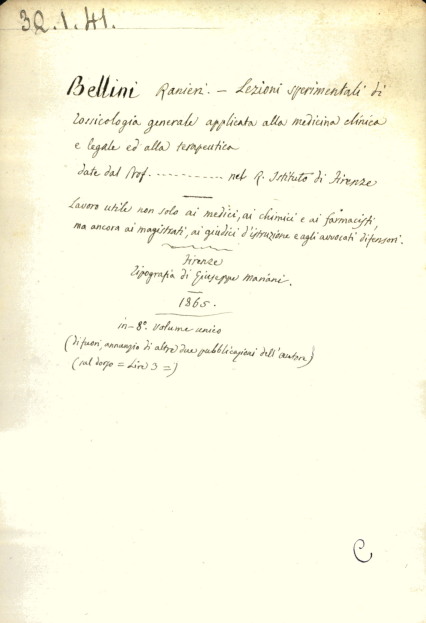 32.1.41.
Bellini Ranieri. — Lezioni sperimentali di
tossicologia generale applicata alla medicina clinica
e legale ed alla terapeutica
date dal Prof. ............ nel R. Istituto di Firenze
Lavoro utile non solo ai medici, ai chimici e ai farmacisti,
ma ancora ai magistrati, ai giudici d'istruzione e agli avvocati difensori.
Firenze
Tipografia di Giuseppe Mariani.
1865.
in-8º. Volume unico
(di fuori, annunzio di altre due pubblicazioni dell'autore)
(sul dorso = Lire 3 =)
C